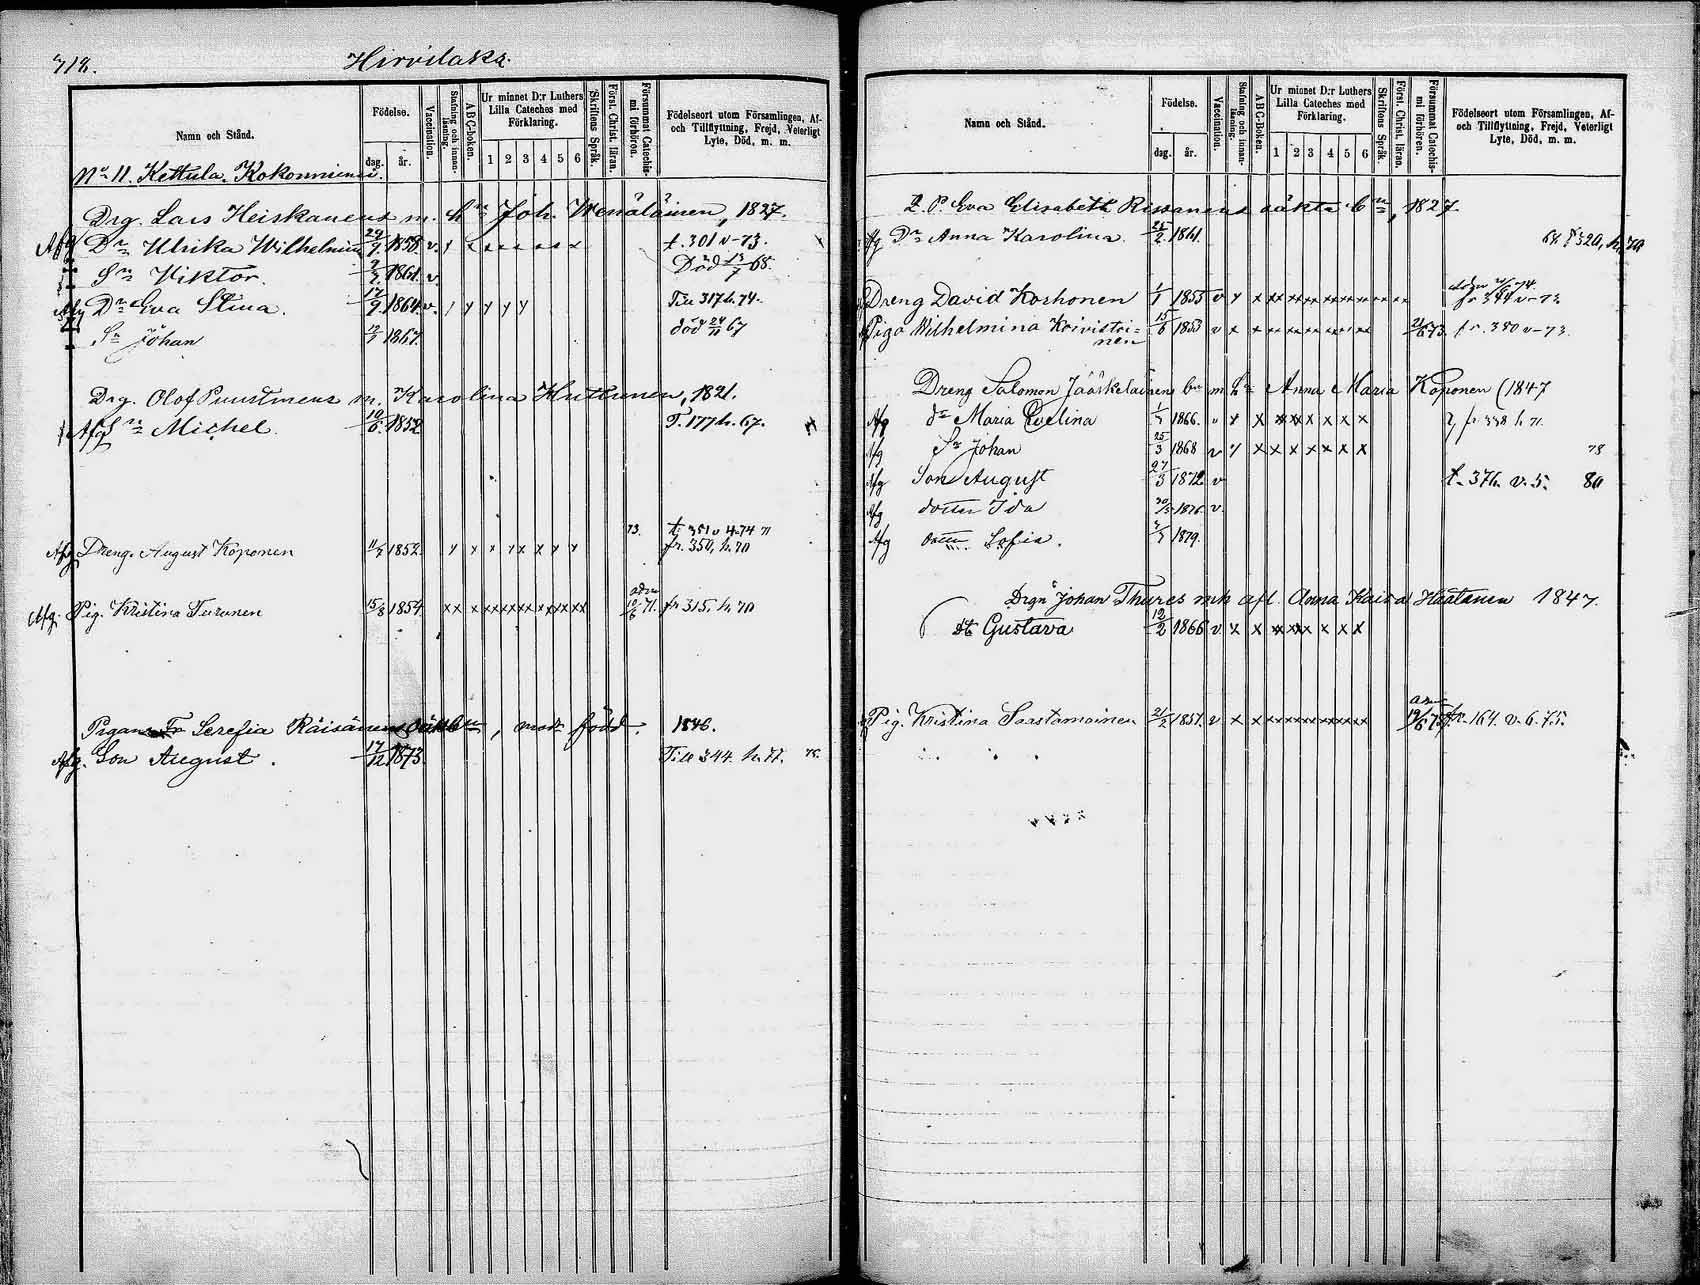 718. Hirvilaks.
Namn och Stånd.
Födelse.
dag. år.
Vaccination.
Stafning och innanläsning.
ABC-boken.
Ur minnet D:r Luthers Lilla Cateches med Förklaring.
1 2 3 4 5 6
Skriftens Språk.
Först. Christ. läran.
Försummat Catechismi förhören.
Födelseort utom Församlingen, Af- och Tillflyttning, Frejd, Veterligt Lyte, Död, m. m.
No 11. Kettula. Kokonniemi.
Drg. Lars Heiskanens m. Joh. Wenäläinen, 1827.
Afg Dr Ulrika Wilhelmina 29/9 1858. v. y x x x x x x t. 301 v-73.
Sn Viktor. 1861. v. Död 13/7 68.
Afg Dr Eva Stina. 17/9 1864. v. / y y y y Till 317 h. 74.
Sn Johan 1867. död 24/11 67
Drg. Olof Puustinens m. Karolina Huttunen, 1821.
Afg Sn Michel. 10/6. 1852 T. 177 h. 67.
73. t. 351 v 4-74
Afg Dreng. August Koponen 1852. y x x x x x y y fr. 350, h. 70
Afg. Pig. Kristina Turunen 15/8 1854 x x x x x x x x x x x x 10/6 71. fr 315. h. 70
Pigans Serefia Räisänens oäkta, modr född. 1846.
Afg. Son August. 17/12 1873. Till 344. h. 77. 78.
Namn och Stånd.
Födelse.
dag. år.
Vaccination.
Stafning och innanläsning.
ABC-Boken.
Ur minnet D:r Luthers Lilla Cateches med Förklaring.
1 2 3 4 5 6
Skriftens Språk.
Först. Christ. läran.
Försummat Catechismi förhören.
Födelseort utom Församlingen, Af- och Tillflyttning, Frejd, Veterligt Lyte, Död, m. m.
L. P. Eva Elisabeth Rissanens oäkta b, 1827
Afg Dr Anna Karolina. 1861. 320, h. 70
Dreng David Korhonen 1/1 1855 v y x x x x x x x x x x fr 344 v-73
Piga Wilhelmina Koivisti=
nen 15/6 1853 v x x x x x x x x x 73. fr. 380 v-73.
Dreng Salomon Jääskeläinens bn m h Anna Maria Koponen (1847
Afg dr Maria Evelina 1866. v y x x x x x x x fr 338 h 71.
Afg Sn Johan 25/3 1868 v y x x x x x x x 78
Afg Son August 27/3 1872 v t. 376. v. 5. 80
Afg dotter Ida 1876. v.
Afg dotter Sofia. 1879.
Drgn Johan Thures mh afl. Anna Kaisa Haatanen 1847.
dt Gustava 12/2 1866 v x x x x x x x x
Pig. Kristina Saastamoinen 1851. v x x x x x x x x x x fr. 164. v. 6. 75.